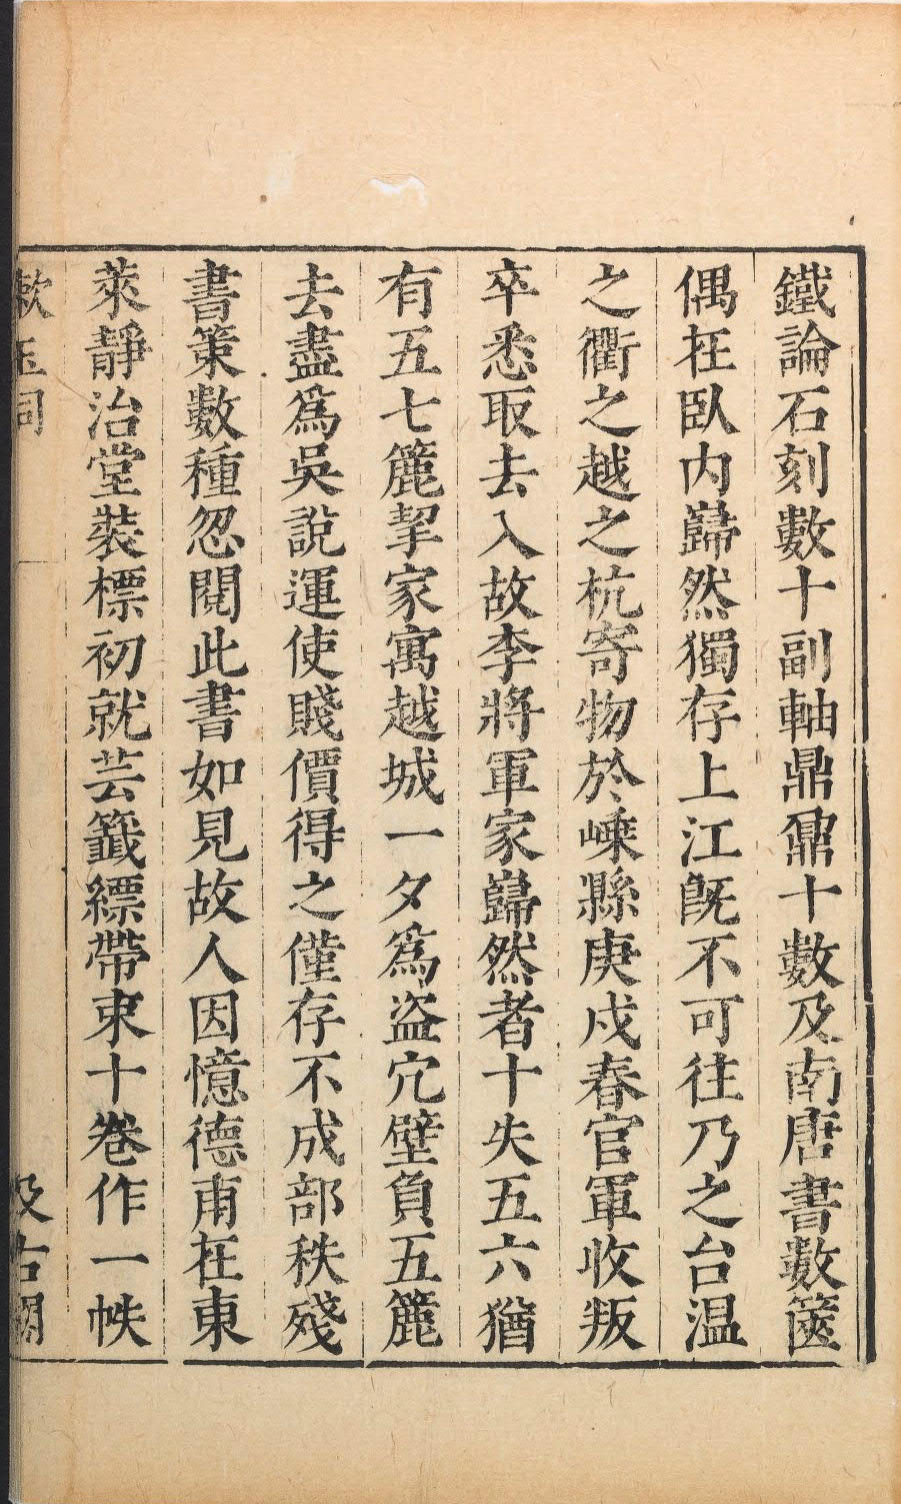 鐵論石刻數十副軸鼎鼐十數及南唐書數篋
偶在臥内巋然獨存上江旣不可往乃之台温
之衢之越之杭寄物於嵊縣庚戍春官軍收叛
卒悉取去入故李將軍家巋然者十失五六猶
有五七簏挈家寓越城一夕爲盗穴壁負五簏
去盡爲吳說運使賤價得之僅存不成部秩殘
書策數種忽閱此書如見故人因憶德甫在東
萊靜治堂裝標初就芸籤縹帶束十卷作一帙
漱玉詞
汲古閣